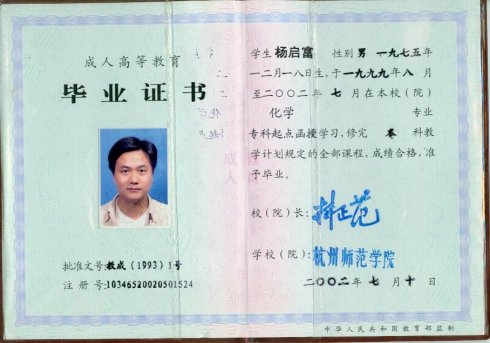 成人高等教育
毕业证书
批准文号:教成(1993)1号
注 册 号:10346520020501524
学生 杨启富 性别 男 一九七五年
一二月一八日生,于一九九九年八月
至二〇〇二年 七月在本校(院)
化学 专业
专科起点函授学习,修完 本 科教
学计划规定的全部课程,成绩合格,准
予毕业。
校(院)长:
学校(院):杭州师范学院
二〇〇二年 七 月 十 日
中华人民共和国教育部监制